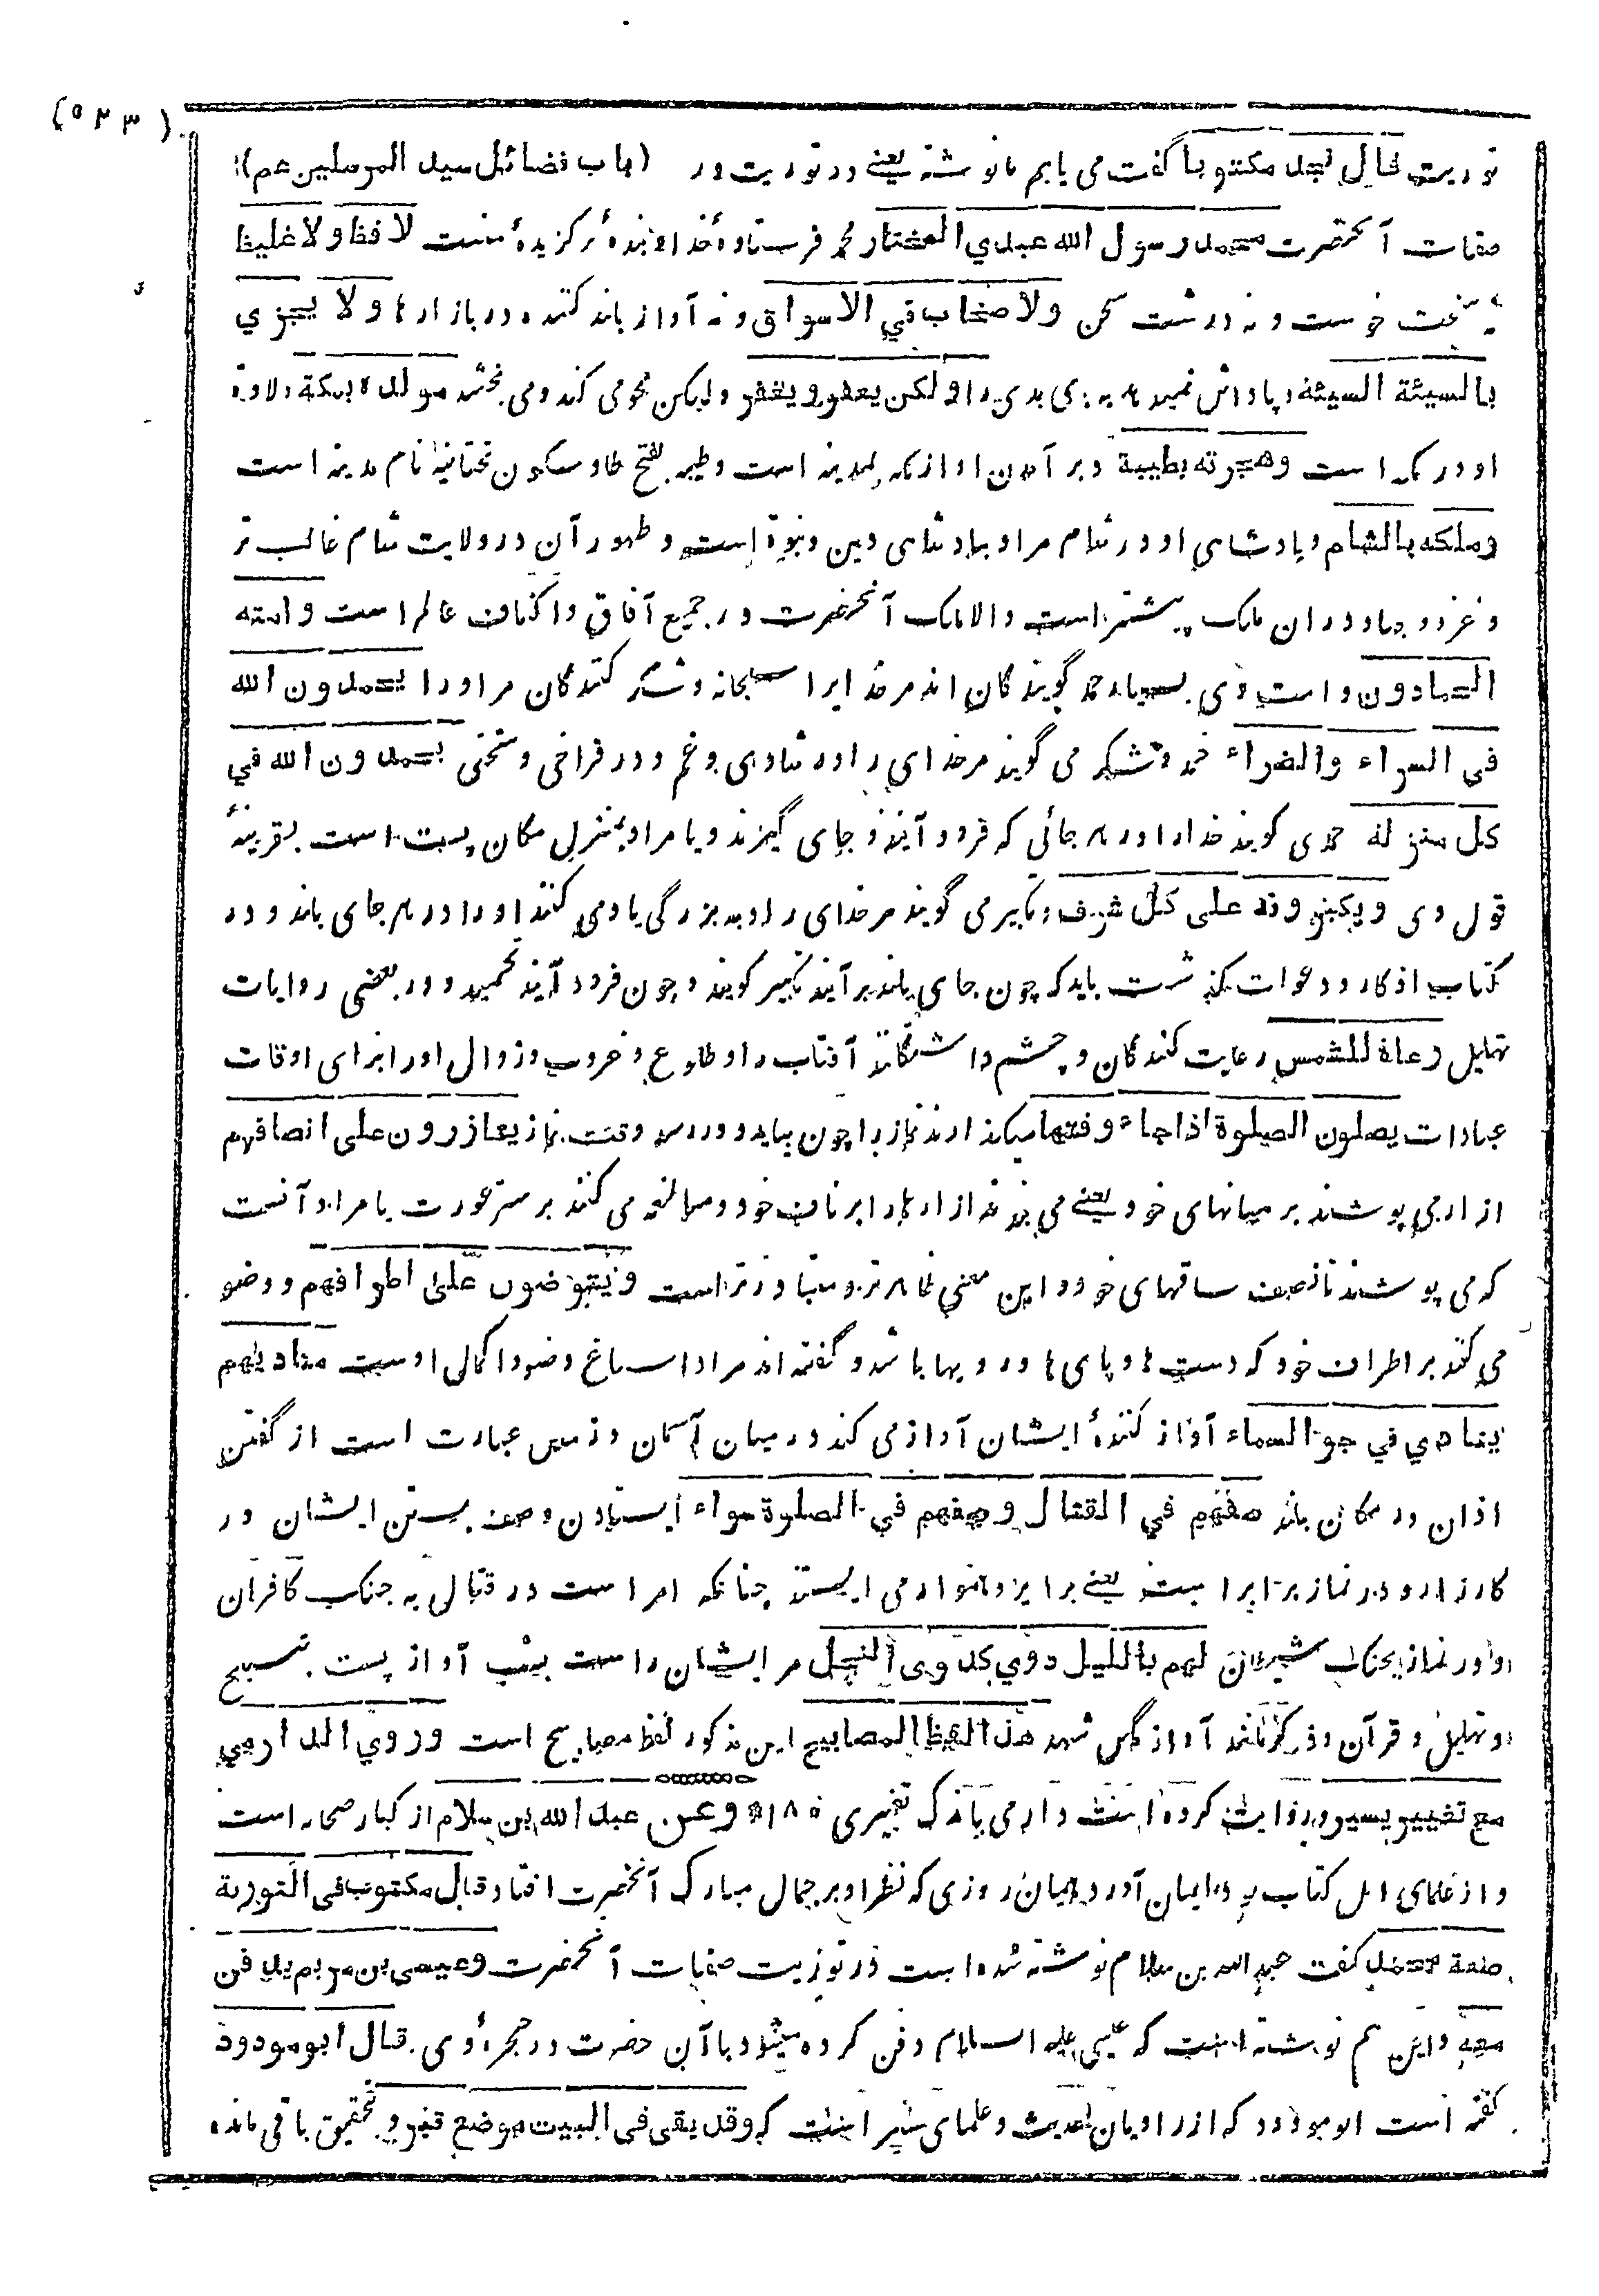 (٥٢٣)
توریت قال نجد مکتوبا گفت می یابیم ما نوشته یعنے در توریت در (باب فضائل سید المرسلین عم)
صفات آنحضرت محمد رسول الله عبدي المختار محمد فرستادهٔ خدا و بندهٔ برگزیدهٔ منست لا فظ ولا غلیظ
نه سخت خوست و نه درشت سخن ولا صخاب في الاسواق و نه آواز بلند کننده در بازارها ولا یجزي
بالسیئة السیئة و پاداش نمیدهد به بدی بدی را ولکن یعفو و یغفر ولیکن محو می کند و می بخشد مولده بمکة ولادت
او در مکه است وهجرته بطیبة و بر آمدن او از مکه بمدینه است و طیبه بفتح طا و سکون تحتانیه نام مدینه است
وملکه بالشام و پادشاهی او در شام مراد بپادشاهی دین و نبوة است و ظهور آن در ولایت شام غالب تر
و غزو و جهاد در ان ملک پیشتر است والا ملک آنحضرت در جمیع آفاق و اکناف عالم است وامته
الحمادون و امت وی بسیار حمد گویندگان اند مر خدایرا سبحانه و شکر کنندگان مر او را یحمدون الله
في السراء والضراء حمد و شکر می گویند مر خدای را در شادی و غم و در فراخی و سختی یحمدون الله في
کل منزلة حمد می گویند خدا را در هر جائی که فرود آیند و جای گیرند و یا مراد بمنزل مکان پست است بقرینهٔ
قول وی ویکبرونه علی کل شرف و تکبیر می گویند مر خدای را و به بزرگی یاد می کنند او را در هر جای بلند و در
کتاب اذکار و دعوات گذشت باید که چون جای بلند بر آیند تکبیر گویند و چون فرود آیند تحمید و در بعضی روایات
تهلیل رعاة للشمس رعایت کنندگان و چشم داشتگانند آفتاب را و طلوع و غروب و زوال او را برای اوقات
عبادات یصلون الصلوة اذا جاء وقتها میگذارند نماز را چون بیاید و در رسد وقت نماز یتأزرون علی انصافهم
ازار می پوشند بر میانهای خود یعنے می بندند ازارها را بر ناف خود و مبالغه می کنند بر ستر عورت یا مراد آنست
که می پوشند تا نصف ساقهای خود و این معنی ظاهر تر و متبادر تر است ویتوضون علی اطرافهم و وضو
می کنند بر اطراف خود که دست ها و پای ها و رویها باشد و گفته اند مراد اسباغ وضو و اکمال اوست منادیهم
ینادي في جو السماء آواز کنندهٔ ایشان آواز می کند در میان آسمان و زمین عبارت است از گفتن
اذان در مکان بلند صفهم في القتال وصفهم في الصلوة سواء ایستادن و صف بستن ایشان در
کارزار و در نماز برابر است یعنے برابر و هموار می ایستند چنانکه امر است در قتال به جنگ کافران
و در نماز بجنگ شیطان لهم باللیل دوي کدوی النحل مر ایشان راست بشب آواز پست تسبیح
و تهلیل و قرآن و ذکر مانند آواز مگس شهد هذا لفظ المصابیح این مذکور لفظ مصابیح است وروي الدارمي
مع تغییر یسیر و روایت کرده است دارمی باندک تغییری ٥١٨٠ وعن عبد الله بن سلام از کبار صحابه است
و از علمای اهل کتاب بود ایمان آورد همان روزی که نظر او بر جمال مبارک آنحضرت افتاد قال مکتوب في التوریة
صفة محمد گفت عبد الله بن سلام نوشته شده است در توریت صفات آنحضرت وعیسی بن مریم یدفن
معه و این هم نوشته است که عیسی علیه السلام دفن کرده میشود با آن حضرت در حجرهٔ وی قال ابو مودود
گفته است ابو مودود که از راویان حدیث و علمای سیر است که وقد بقی في البیت موضع قبر و بتحقیق باقی مانده